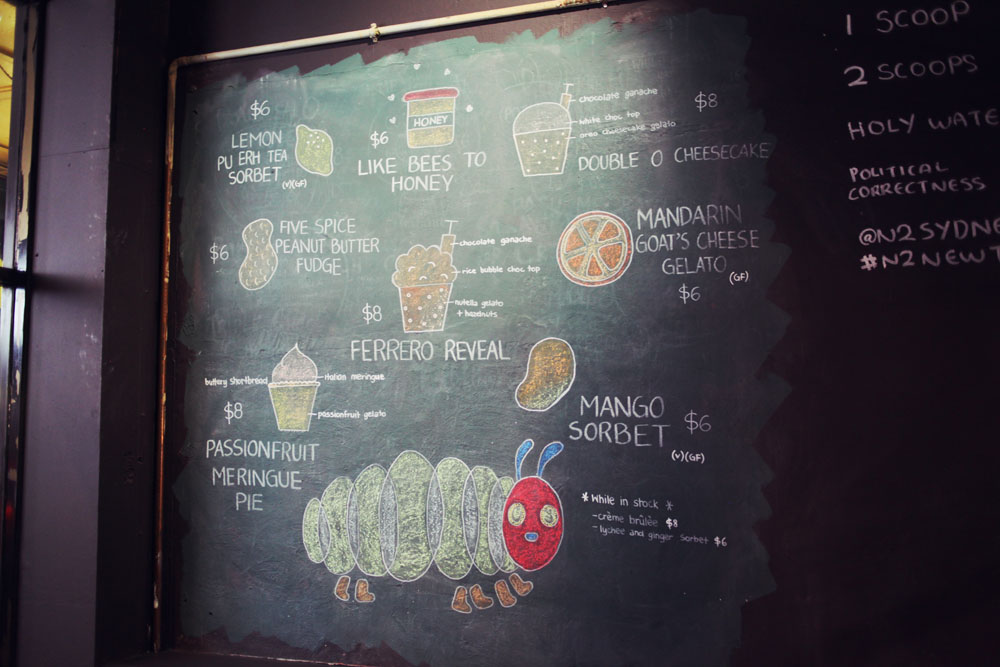 $6
LEMON
PU ERH TEA
SORBET (V)(GF)
HONEY
$6
LIKE BEES TO
HONEY
chocolate ganache
white choc top
oreo cheesecake gelato
$8
DOUBLE O CHEESECAKE
$6
FIVE SPICE
PEANUT BUTTER
FUDGE
chocolate ganache
rice bubble choc top
nutella gelato
+ hazelnuts
$8
FERRERO REVEAL
MANDARIN
GOAT'S CHEESE
GELATO (GF)
$6
buttery shortbread
italian meringue
passionfruit gelato
$8
PASSIONFRUIT
MERINGUE
PIE
MANGO
SORBET
$6
(V)(GF)
* While in stock *
-crème brûlèe $8
-lychee and ginger sorbet $6
1 SCOOP
2 SCOOPS
HOLY WATE
POLITICAL
CORRECTNESS
@N2SYDNE
#N2NEWT